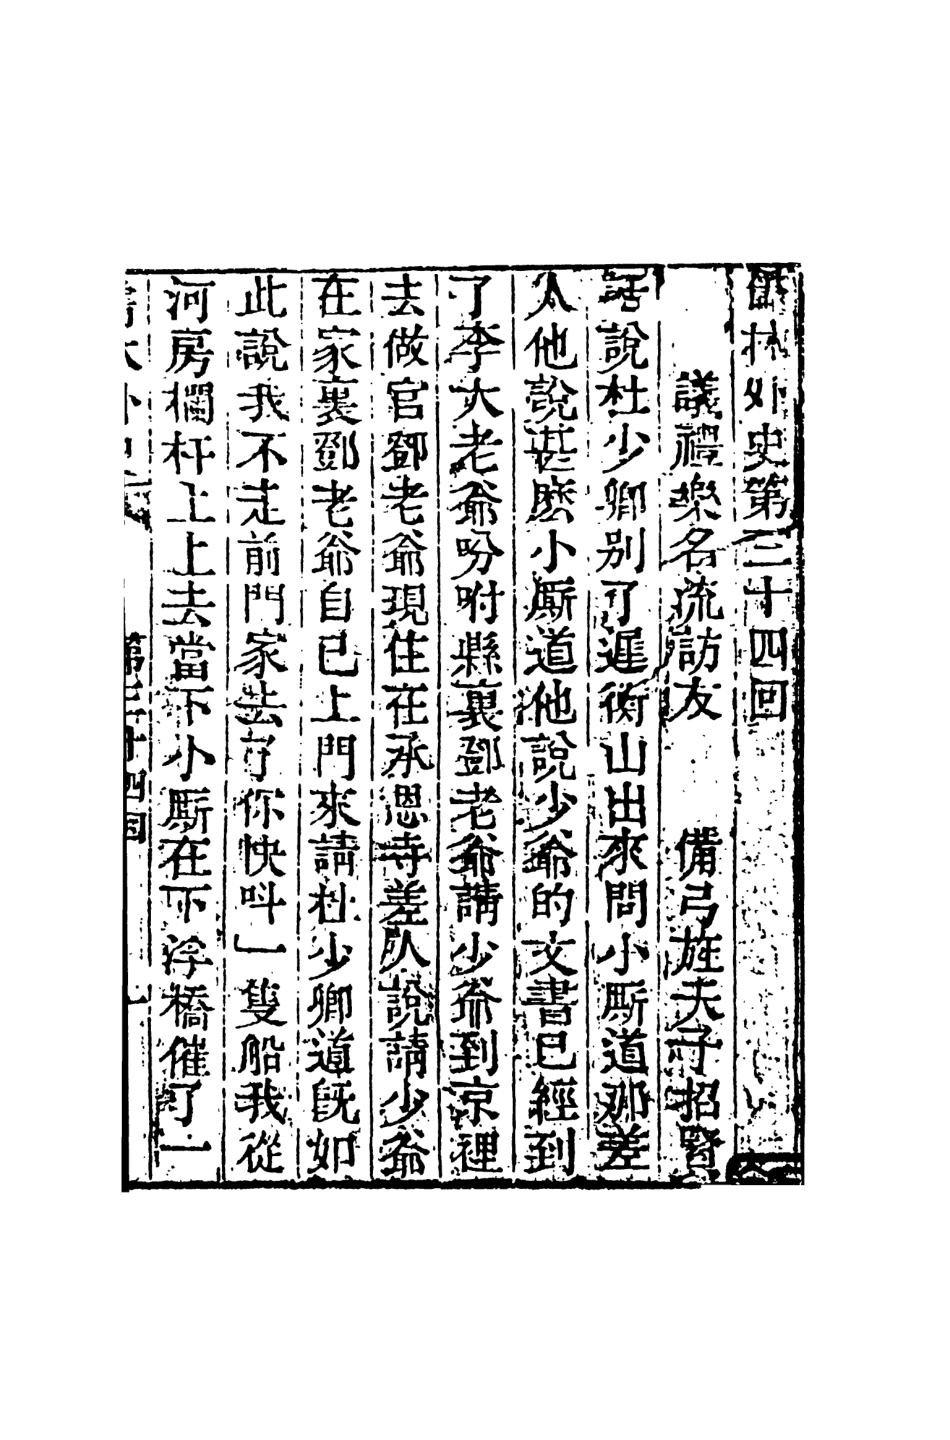 儒林外史第三十四回
議禮樂名流訪友　備弓旌天子招賢
話說杜少卿別了遲衡山出來問小厮道那差
人他說甚麽小厮道他說少爺的文書已經到
了李大老爺吩咐縣裏鄧老爺請少爺到京裡
去做官鄧老爺現住在承恩寺差人說請少爺
在家裏鄧老爺自已上門來請杜少卿道旣如
此說我不走前門家去了你快呌一隻船我從
河房欄杆上上去當下小厮在下浮橋催了一
第三十四回